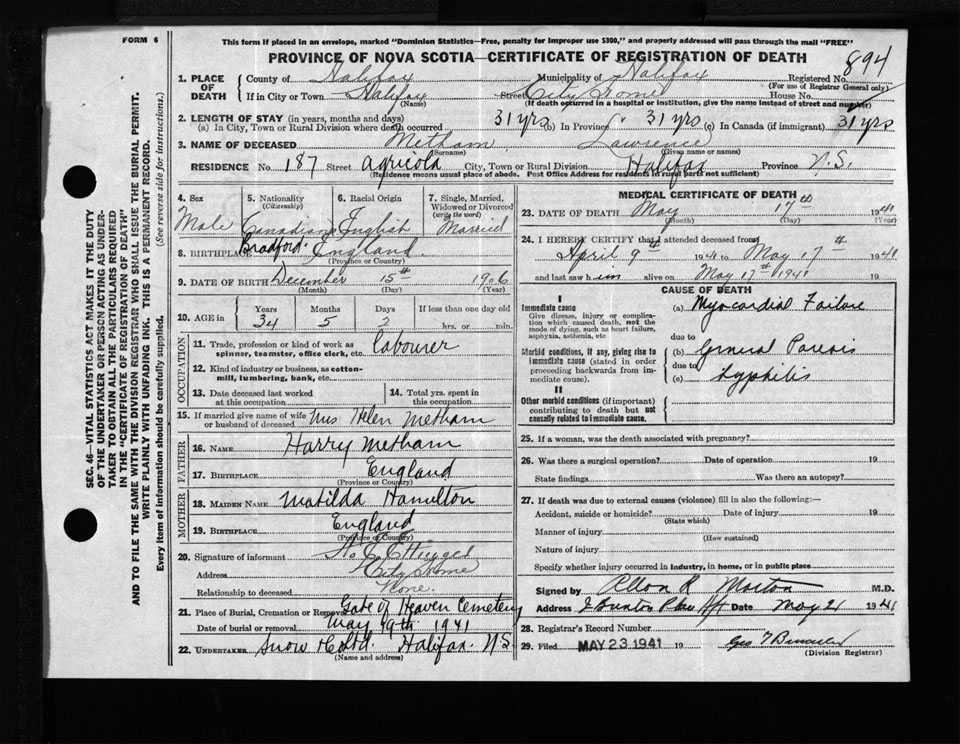 FORM 6
This form if placed in an envelope, marked "Dominion Statistics—Free, penalty for improper use $300," and properly addressed will pass through the mail "FREE"
PROVINCE OF NOVA SCOTIA—CERTIFICATE OF REGISTRATION OF DEATH
894
1. PLACE OF DEATH County of Halifax Municipality of Halifax Registered No.
(For use of Registrar General only)
If in City or Town Halifax Street City Home House No.
(Name) (If death occurred in a hospital or institution, give the name instead of street and number)
2. LENGTH OF STAY (in years, months and days)
(a) In City, Town or Rural Division where death occurred 31 yrs (b) In Province 31 yrs (c) In Canada (if immigrant) 31 yrs
3. NAME OF DECEASED Metham Lawrence
(Surname) (Given name or names)
RESIDENCE No. 187 Street Agricola City, Town or Rural Division Halifax Province N.S.
(Residence means usual place of abode. Post Office Address for residents of rural parts not sufficient)
4. Sex 5. Nationality (Citizenship) 6. Racial Origin 7. Single, Married, Widowed or Divorced (write the word)
Male Canadian English Married
8. BIRTHPLACE Bradford England
(Province or Country)
9. DATE OF BIRTH December 15th 1906
(Month) (Day) (Year)
10. AGE in Years Months Days If less than one day old
34 5 2 hrs. or min.
OCCUPATION
11. Trade, profession or kind of work as spinner, teamster, office clerk, etc. Labourer
12. Kind of industry or business, as cotton-mill, lumbering, bank, etc.
13. Date deceased last worked at this occupation
14. Total yrs. spent in this occupation
15. If married give name of wife or husband of deceased Mrs Helen Metham
FATHER
16. NAME Harry Metham
17. BIRTHPLACE England
(Province or Country)
MOTHER
18. MAIDEN NAME Matilda Hamilton
19. BIRTHPLACE England
(Province or Country)
20. Signature of informant
Address City Home
Relationship to deceased None.
21. Place of Burial, Cremation or Removal Gate of Heaven Cemetery
Date of burial or removal May 19th 1941
22. UNDERTAKER Snow & Co Ltd. Halifax N.S.
(Name and address)
MEDICAL CERTIFICATE OF DEATH
23. DATE OF DEATH May 17th 1941
(Month) (Day) (Year)
24. I HEREBY CERTIFY that I attended deceased from
April 9th 1941 to May 17th 1941
and last saw him alive on May 17th 1941 19
CAUSE OF DEATH
I
Immediate cause
Give disease, injury or complication which caused death, not the mode of dying, such as heart failure, asphyxia, asthenia, etc
(a) Myocardial Failure
due to
Morbid conditions, if any, giving rise to immediate cause (stated in order proceeding backwards from immediate cause).
(b) General Paresis
due to
(c) Syphilis
II
Other morbid conditions (if important) contributing to death but not causally related to immediate cause.
25. If a woman, was the death associated with pregnancy?
26. Was there a surgical operation? Date of operation 19
State findings Was there an autopsy?
27. If death was due to external causes (violence) fill in also the following:—
Accident, suicide or homicide? Date of injury 19
(State which)
Manner of injury
(How sustained)
Nature of injury
Specify whether injury occurred in industry, in home, or in public place
Signed by Allon R Morton M.D.
Address Date May 21 1941
28. Registrar's Record Number
29. Filed MAY 23 1941 19
(Division Registrar)
SEC. 46—VITAL STATISTICS ACT MAKES IT THE DUTY
OF THE UNDERTAKER OR PERSON ACTING AS UNDER-
TAKER TO OBTAIN ALL THE PARTICULARS REQUIRED
IN THE "CERTIFICATE OF REGISTRATION OF DEATH"
AND TO FILE THE SAME WITH THE DIVISION REGISTRAR WHO SHALL ISSUE THE BURIAL PERMIT.
WRITE PLAINLY WITH UNFADING INK. THIS IS A PERMANENT RECORD.
Every item of information should be carefully supplied. (See reverse side for instructions.)